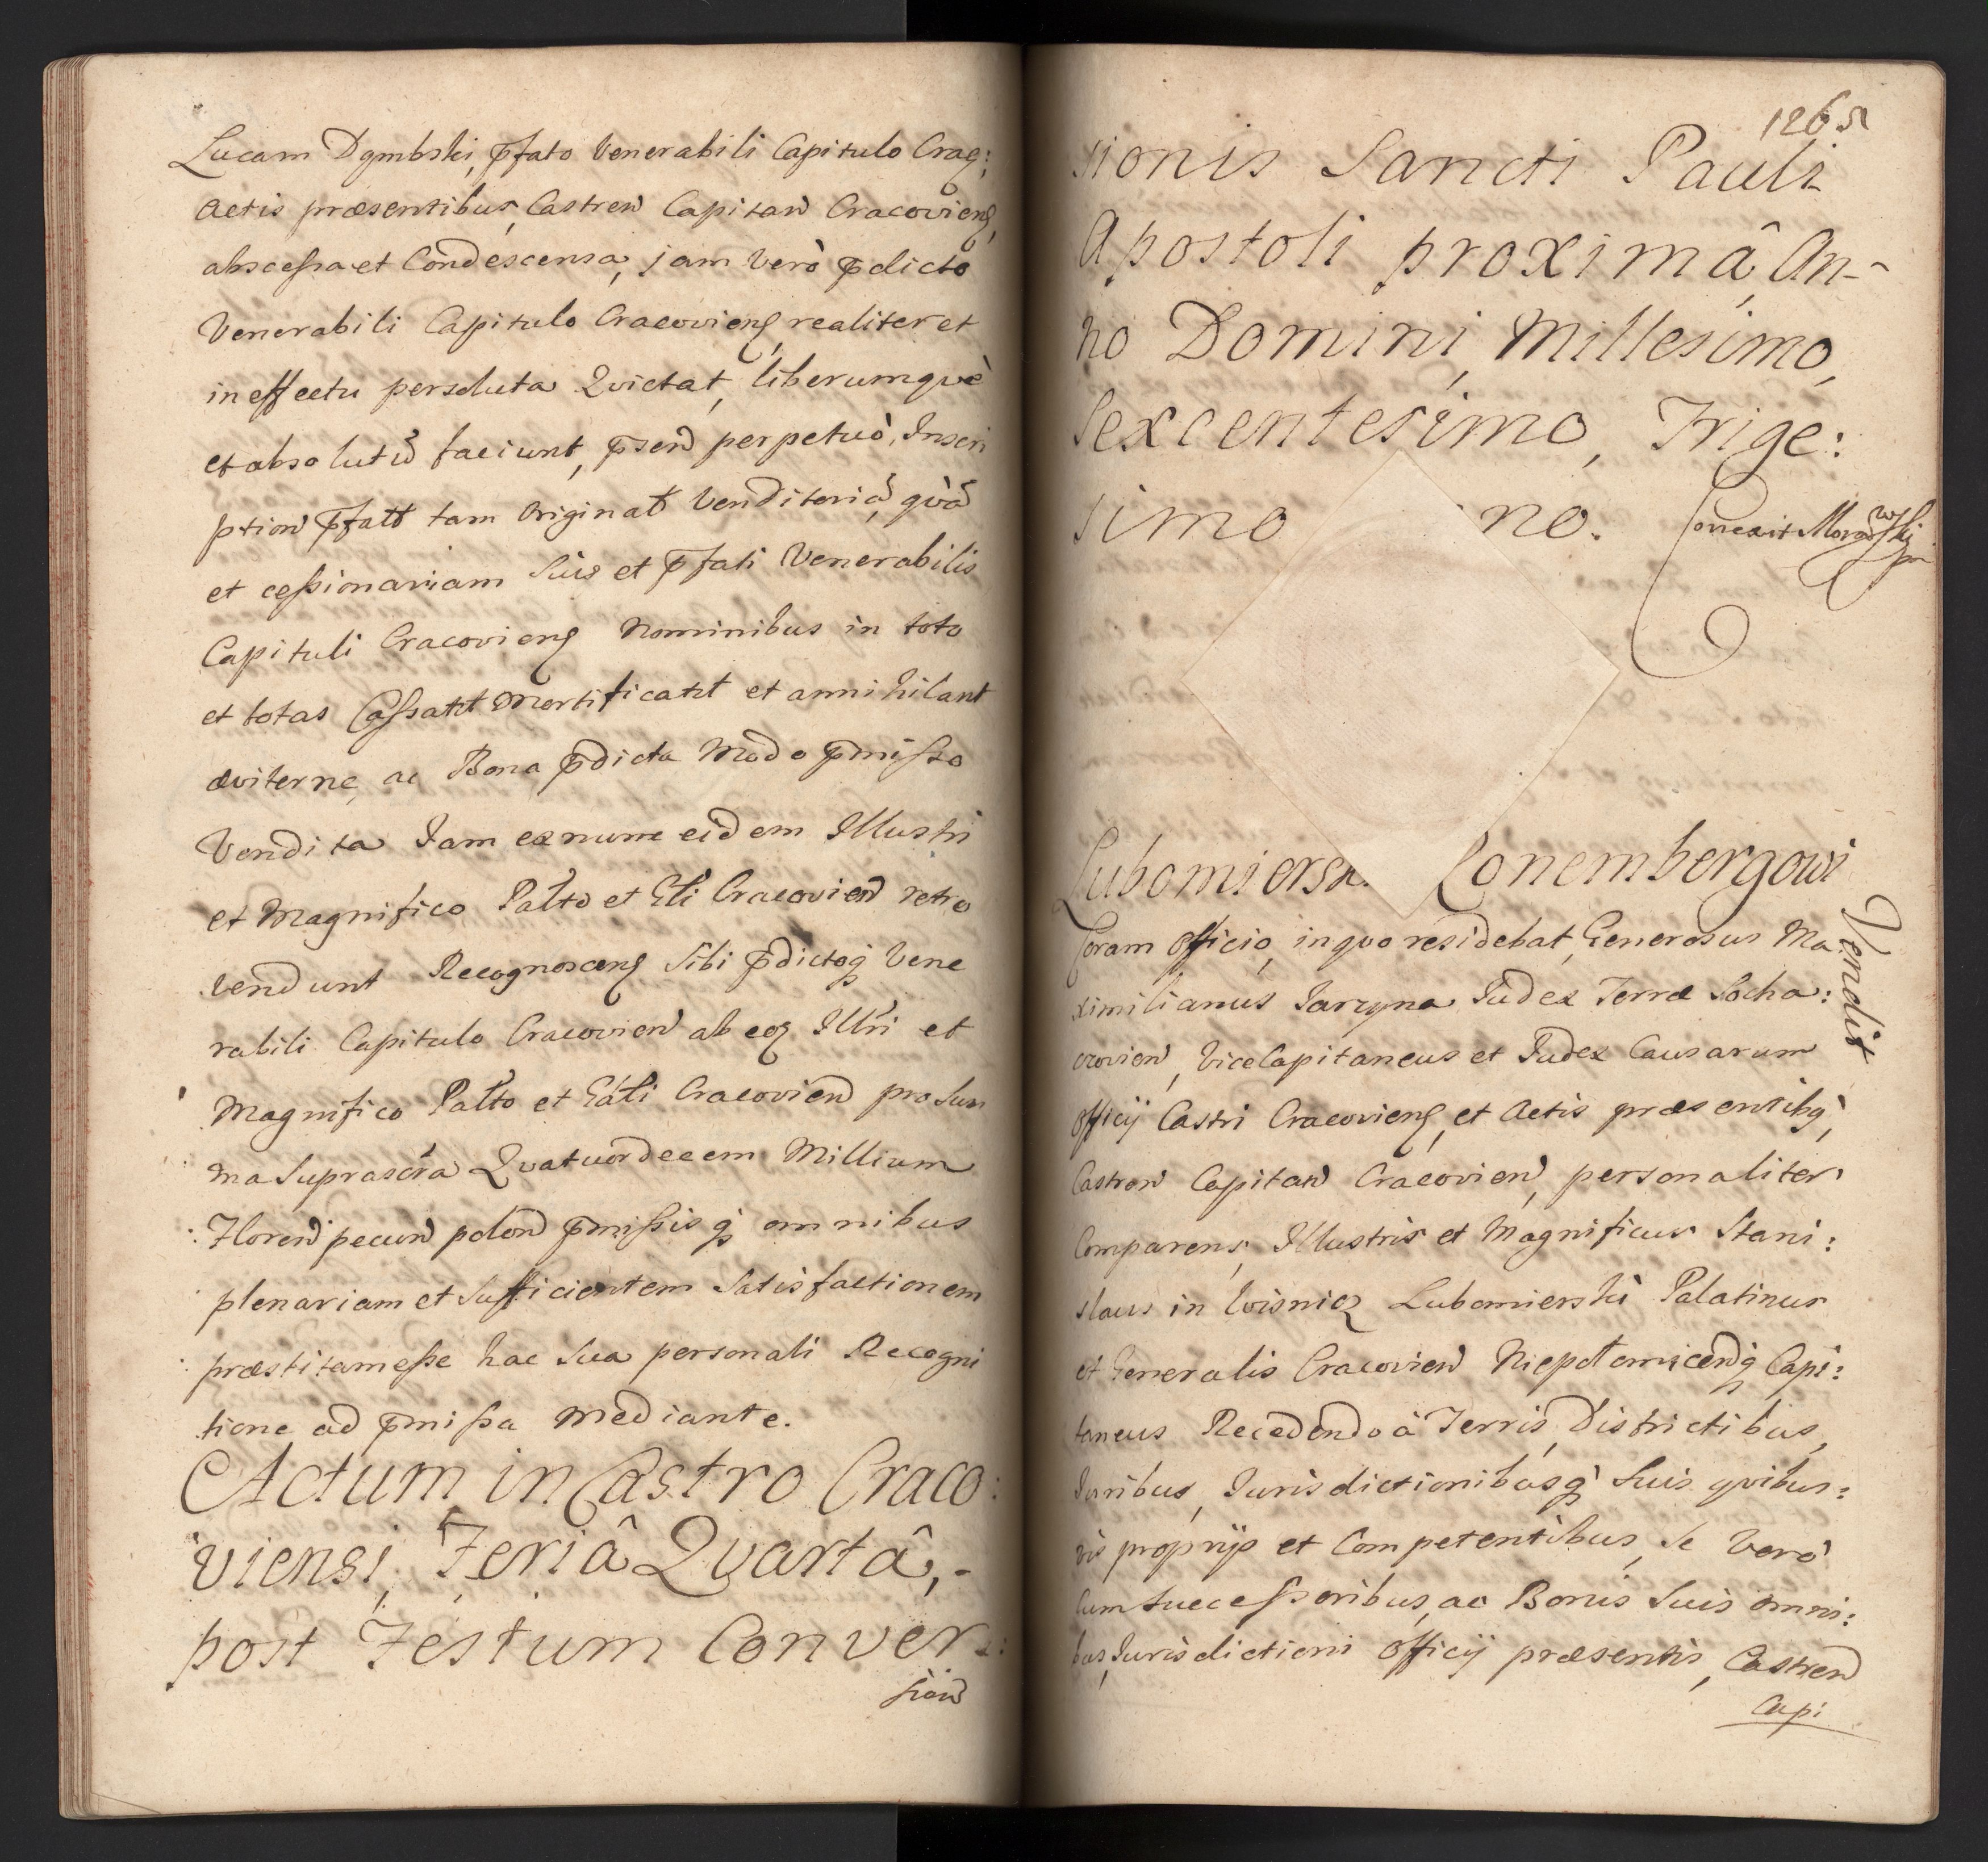 Lucam Dąmbski, p̄fato Venerabili Capitulo Crac:
Actis præsentibus, Castren Capitan Cracovien,
abscessa et Condescensa, jam verò p̄dicto
Venerabili Capitulo Cracovien, realiter et
in effectu persoluta Qvietat, liberumqvè
et absolutū faciunt, p̄sen perpetuò, Inscri
ption p̄fatt tam Originał Venditoriā, qvā
et cessionariam Suis et p̄fati Venerabilis
Capituli Cracovien Nominibus in toto
et totas Cassant Mortificant et annihilant
æviterne, ac Bona p̄dicta Modo p̄misso
Vendita Jam ex nunc eidem Illustri
et Magnifico Palto et Gli Cracovien retro
vendunt Recognoscen Sibi p̄dictoq Vene
rabili Capitulo Cracovien ab eoq Illri et
Magnifico Palto et Gāli Cracovien pro Sum
ma Suprascra Qvatuordecem Millium
Floren pecun polon p̄missisq omnibus
plenariam et Sufficientem Satisfactionem
præstitam esse hac Sua personali Recogni
tione ad p̄missa Mediante.
Actum in Castro Craco:
viensi, Feriâ Qvartâ,-
post Festum Conver:
sion
1265
sionis Sancti Pauli
Apostoli proximâ, An-
no Domini, Millesimo,
Sexcentesimo, Trige:
simo no.
Conexit Morawski
Lubomiersk. Conembergowi
Vendit
Coram Officio, in qvo residebat, Generosus Ma
ximilianus Jarzyna Judex Terræ Socha:
czovien, ViceCapitaneus et Judex Causarum
Officij Castri Cracovien, et Actis præsentibq,
Castren Capitan Cracovien, personaliter
Comparens, Illustris et Magnificus Stani:
slaus in Wisnicz Lubomierski Palatinus
et Generalis Cracovien Niepołomicenq Capi:
taneus Recedendo à Terris, Districtibus,
Juribus, Jurisdictionibusq Suis qvibus:
vis proprijs et Competentibus, Se Verò
Cum Successoribus, ac Bonis Suis omni:
bus, Jurisdictioni Officij præsentis, Castren
Capi